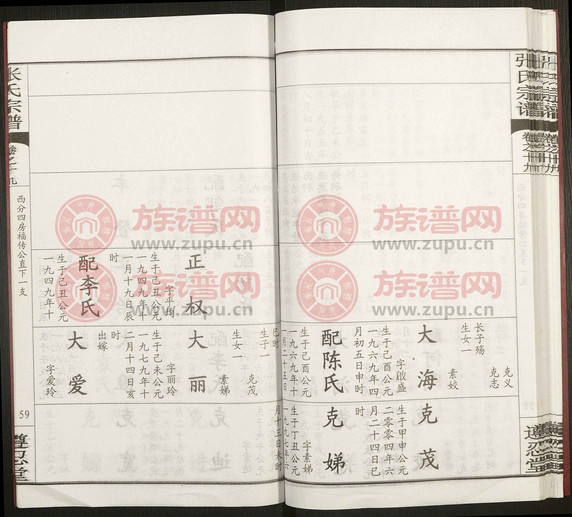 张氏宗谱
卷之十九
长子殇
生女一
克义
克志
素姣
大海
字啟盛
生于己酉公元
一九六九年四
月初五日申时
配陈氏
生于己酉公元
一九六九年十
生子一
生女一
克茂
素娣
克茂
生于甲申公元
二〇〇四年六
月二十四日巳
时
克娣
字素娣
生于丁丑公元
一九九七年六
月十三日未时
正权
字平均
生于己丑公元
一九四九年十
一月十九日辰
时
配李氏
生于己丑公元
一九四九年十
大丽
字丽玲
生于己未公元
一九七九年十
二月十四日亥
时
出嫁
大爱
字爱玲
张氏宗谱
西分四房福传公直下一支
59
遵忍堂
族谱网
www.zupu.cn
族谱网
www.zupu.cn
族谱网
www.zupu.cn
族谱网
www.zupu.cn